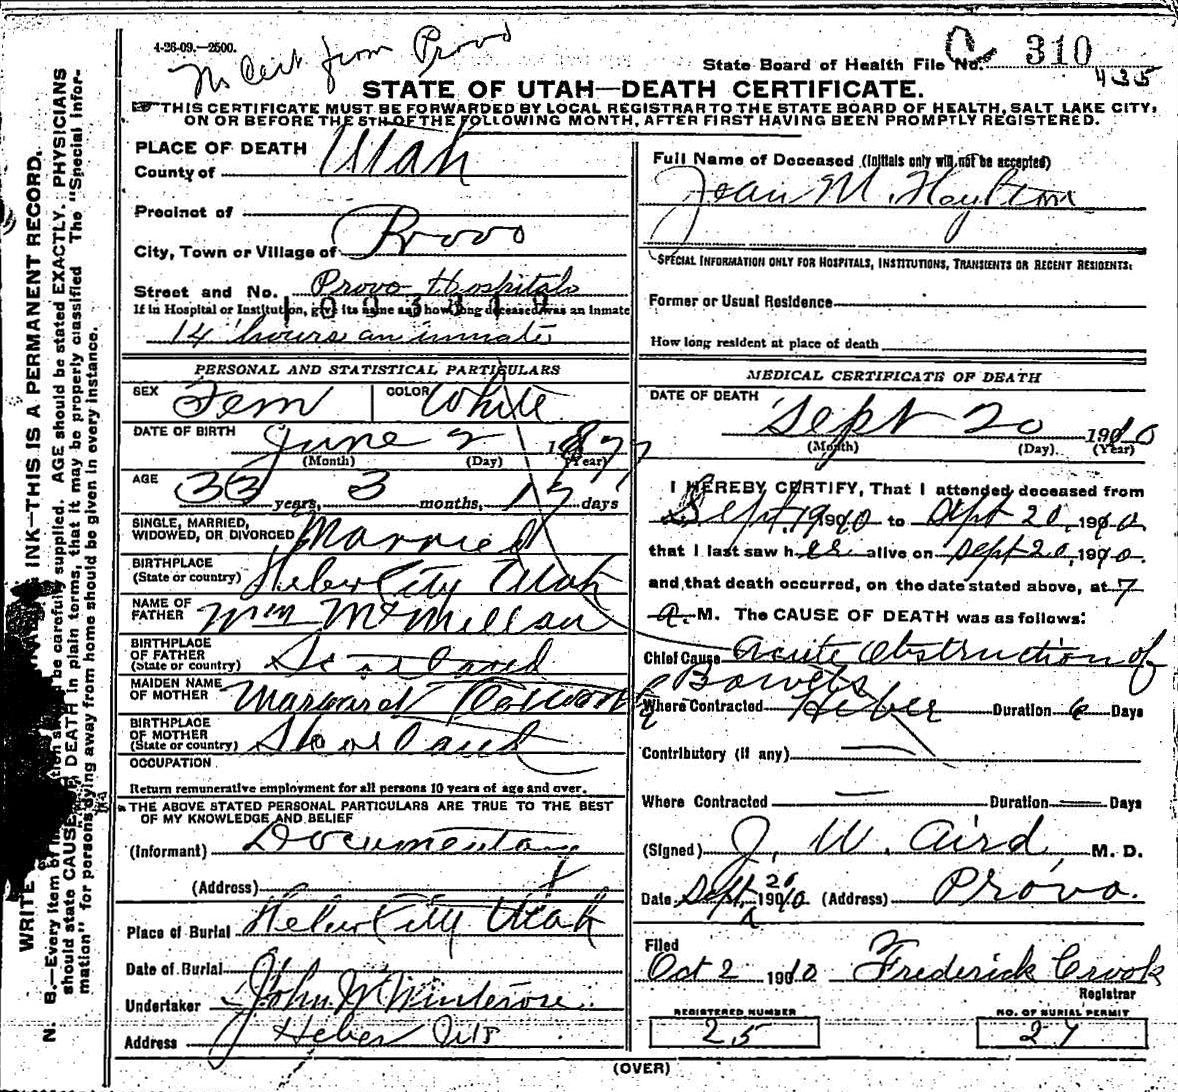 4-26-09.—2500.
Cert from Provo
State Board of Health File No. 310
435
STATE OF UTAH—DEATH CERTIFICATE.
THIS CERTIFICATE MUST BE FORWARDED BY LOCAL REGISTRAR TO THE STATE BOARD OF HEALTH, SALT LAKE CITY,
ON OR BEFORE THE 5TH OF THE FOLLOWING MONTH, AFTER FIRST HAVING BEEN PROMPTLY REGISTERED.
PLACE OF DEATH
County of Utah
Precinct of
City, Town or Village of Provo
Street and No. Provo Hospitals
If in Hospital or Institution, give its name and how long deceased was an inmate
14 hours an inmate
PERSONAL AND STATISTICAL PARTICULARS
SEX Fem COLOR White
DATE OF BIRTH June 2 1877
(Month) (Day) (Year)
AGE 33 years, 3 months, 17 days
SINGLE, MARRIED,
WIDOWED, OR DIVORCED Married
BIRTHPLACE
(State or country) Heber City Utah
NAME OF
FATHER Wm McMillan
BIRTHPLACE
OF FATHER
(State or country) Scotland
MAIDEN NAME
OF MOTHER Margaret
BIRTHPLACE
OF MOTHER
(State or country) Scotland
OCCUPATION
Return remunerative employment for all persons 10 years of age and over.
THE ABOVE STATED PERSONAL PARTICULARS ARE TRUE TO THE BEST
OF MY KNOWLEDGE AND BELIEF
(Informant) Documentary
(Address)
Place of Burial Heber City Utah
Date of Burial
Undertaker John W Winterose
Address Heber
Full Name of Deceased (Initials only will not be accepted)
Jean M.
SPECIAL INFORMATION ONLY FOR HOSPITALS, INSTITUTIONS, TRANSIENTS OR RECENT RESIDENTS:
Former or Usual Residence
How long resident at place of death
MEDICAL CERTIFICATE OF DEATH
DATE OF DEATH Sept 20 1910
(Month) (Day) (Year)
I HEREBY CERTIFY, That I attended deceased from
Sept 19 1910 to Sept 20, 1910
that I last saw her alive on Sept 20, 1910.
and that death occurred, on the date stated above, at 7
a. M. The CAUSE OF DEATH was as follows:
Chief Cause Acute Obstruction of
Bowels
Where Contracted Heber Duration 6 Days
Contributory (if any)
Where Contracted Duration Days
(Signed) J. W. Aird, M. D.
Date Sept 20 1910 (Address) Provo.
Filed
Oct 2 1910 Frederick Crook
Registrar
REGISTERED NUMBER
25
NO. OF BURIAL PERMIT
27
(OVER)
INK—THIS IS A PERMANENT RECORD.
WRITE
N. B.—Every item of
be carefully supplied. AGE should be stated EXACTLY. PHYSICIANS
should state CAUSE OF DEATH in plain terms, that it may be properly classified. The "Special Infor-
mation" for persons dying away from home should be given in every instance.